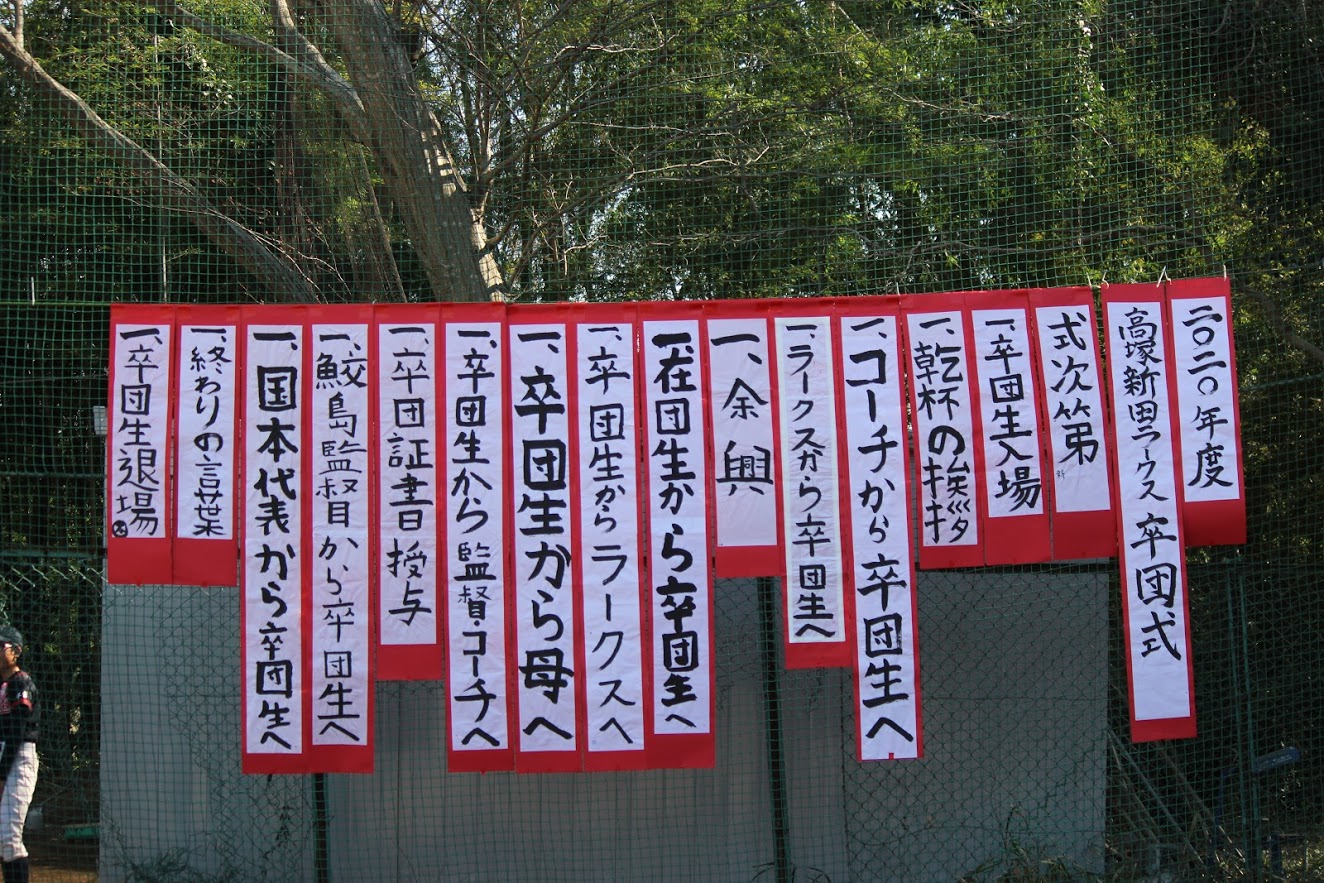 二〇二〇年度
高塚新田ラークス 卒団式
式次第
一、卒団生入場
一、乾杯の挨拶
一、コーチから卒団生へ
一、ラークスから卒団生へ
一、余興
一、在団生から卒団生へ
一、卒団生からラークスへ
一、卒団生から母へ
一、卒団生から監督・コーチへ
一、卒団証書授与
一、鮫島監督から卒団生へ
一、国本代表から卒団生へ
一、終わりの言葉
一、卒団生退場